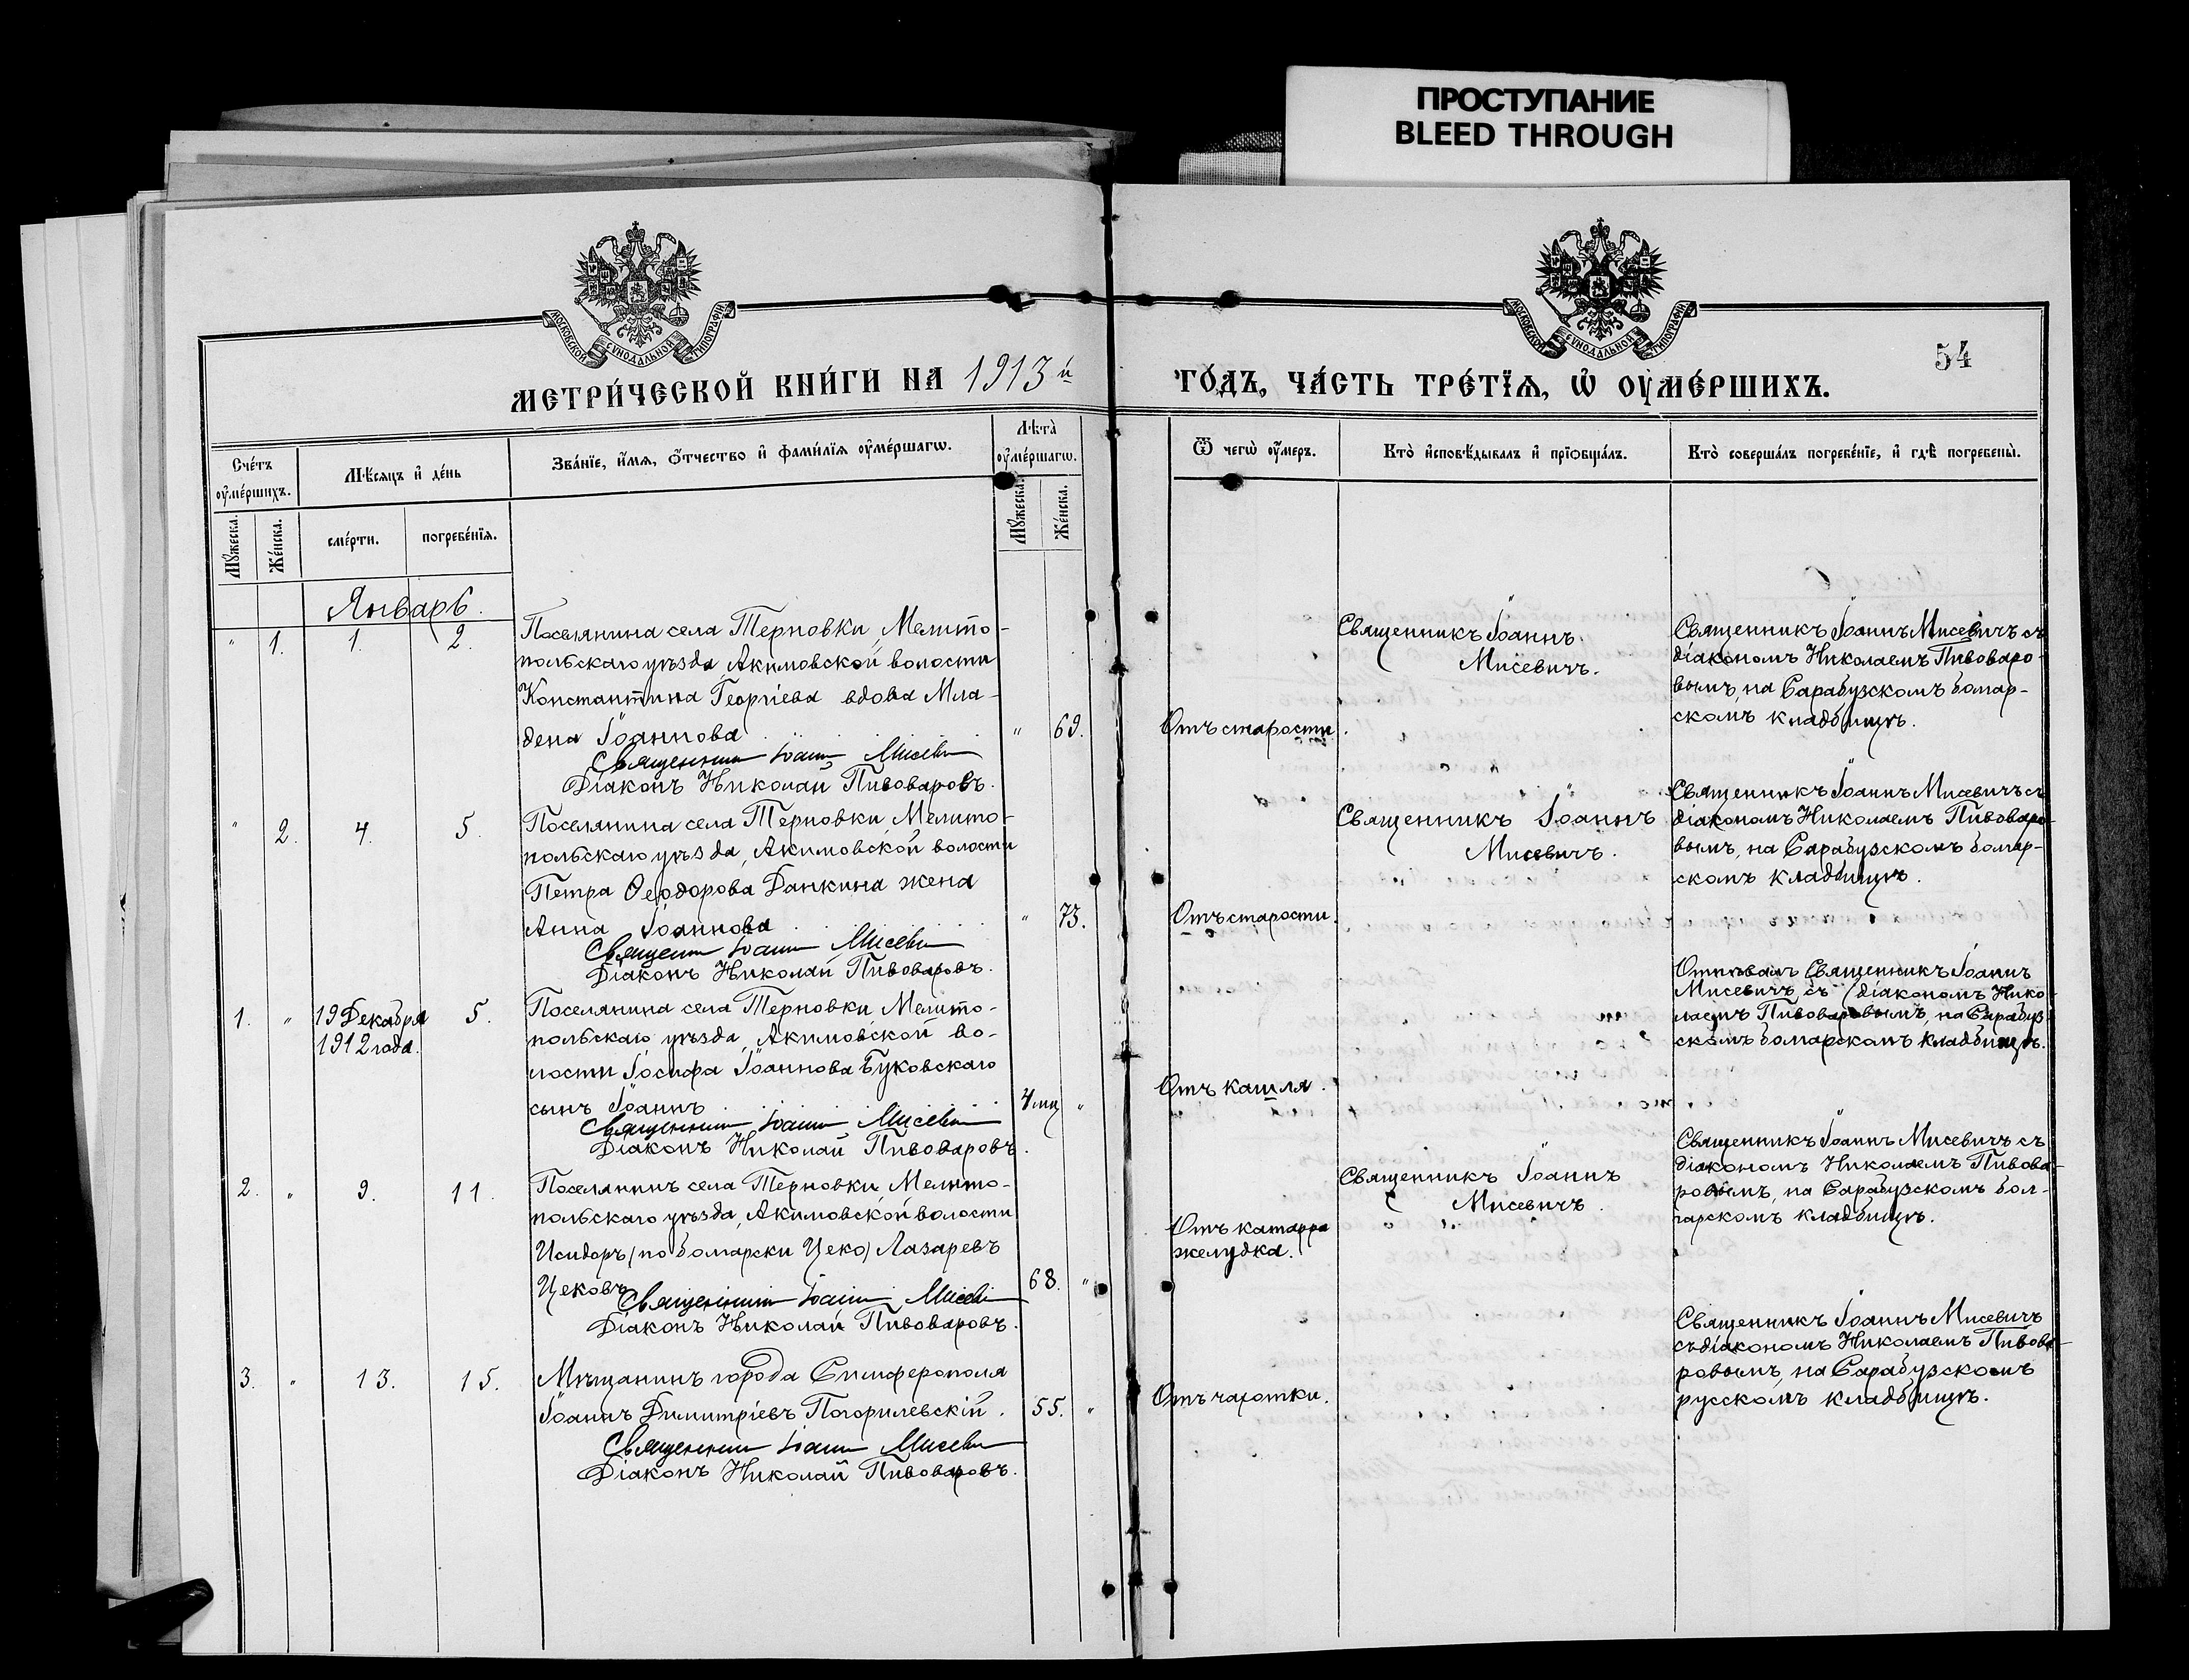 ПРОСТУПАНИЕ
BLEED THROUGH
МОСКОВСКОЙ СѴНОДАЛЬНОЙ ТИПОГРАФІИ
МОСКОВСКОЙ СѴНОДАЛЬНОЙ ТИПОГРАФІИ
54
МЕТРИ́ЧЕСКОЙ КНИ́ГИ НА 1913й
ГО́ДЪ, ЧА́СТЬ ТРЕ́ТЇѦ, Ѡ҆ ОУ҆МЕ́РШИХЪ.
Сче́тъ оу҆ме́ршихъ.
Мѣ́сяцъ и҆ де́нь
Зва́нїе, и҆́мѧ, ѻ҆́тчество и҆ фами́лїѧ оу҆ме́ршагѡ.
Лѣ̀та̀ оу҆ме́ршагѡ.
Ѿ чегѡ̀ оу҆́меръ.
Кто̀ и҆сповѣ́дывалъ и҆ прїѡбща́лъ.
Кто̀ соверша́лъ погребе́нїе, и҆ гдѣ̀ погребены̀.
Мꙋ́жеска.
Же́нска.
сме́рти.
погребе́нїѧ.
Мꙋ́жеска.
Же́нска.
Январь.
" 1. 1. 2.
Поселянина села Терновки, Мелито-
польскаго уѣзда, Акимовской волости
Константина Георгіева вдова Мла-
дена Іоаннова " 69.
Священник Іоанн Мисевич
Діаконъ Николай Пивоваровъ.
Отъ старости.
Священникъ Іоаннъ
Мисевичъ.
Священникъ Іоаннъ Мисевичъ съ
діакономъ Николаемъ Пивоваро-
вымъ, на Сарабузскомъ болгар-
скомъ кладбищѣ.
" 2. 4. 5.
Поселянина села Терновки, Мелито-
польскаго уѣзда, Акимовской волости
Петра Ѳеодорова Данкина жена
Анна Іоаннова " 73.
Священник Іоанн Мисевич
Діаконъ Николай Пивоваровъ.
Отъ старости.
Священникъ Іоаннъ
Мисевичъ.
Священникъ Іоаннъ Мисевичъ съ
діакономъ Николаемъ Пивоваро-
вымъ, на Сарабузскомъ болгар-
скомъ кладбищѣ.
1. " 19 Декабря 5.
1912 года.
Поселянина села Терновки, Мелито-
польскаго уѣзда, Акимовской во-
лости Іосифа Іоаннова Буковскаго
сынъ Іоаннъ 4 мц "
Священник Іоанн Мисевич
Діаконъ Николай Пивоваровъ.
Отъ кашля.
Отпѣвалъ Священникъ Іоаннъ
Мисевичъ съ діакономъ Нико-
лаемъ Пивоваровымъ, на Сарабуз-
скомъ болгарскомъ кладбищѣ.
2. " 9. 11.
Поселянинъ села Терновки, Мелито-
польскаго уѣзда, Акимовской волости
Исидоръ (по болгарски Цеко) Лазаревъ
Цековъ 68. "
Священник Іоанн Мисевич
Діаконъ Николай Пивоваровъ.
Отъ катарра
желудка.
Священникъ Іоаннъ
Мисевичъ.
Священникъ Іоаннъ Мисевичъ съ
діакономъ Николаемъ Пивова-
ровымъ, на Сарабузскомъ бол-
гарскомъ кладбищѣ.
3. " 13. 15.
Мѣщанинъ города Симферополя
Іоаннъ Димитріевъ Погорилевскій. 55. "
Священник Іоанн Мисевич
Діаконъ Николай Пивоваровъ.
Отъ чахотки.
Священникъ Іоаннъ Мисевичъ
съ діакономъ Николаемъ Пивова-
ровымъ, на Сарабузскомъ
русскомъ кладбищѣ.